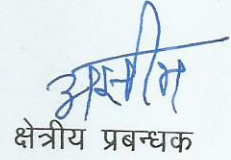 असीम
क्षेत्रीय प्रबन्धक